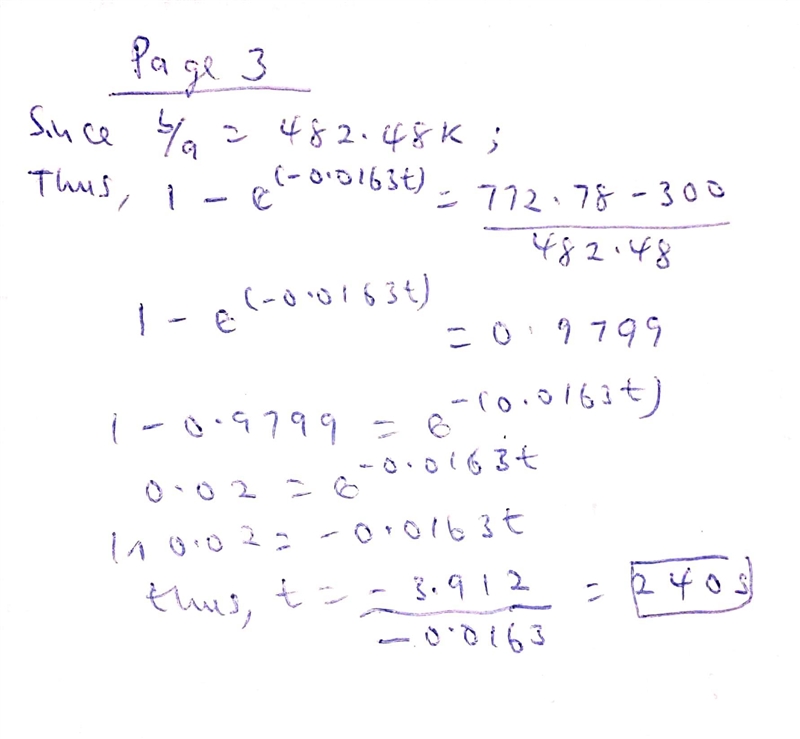 Page 3
Since b/a = 482.48K ;
Thus, 1 - e^(-0.0163t) = (772.78 - 300)/482.48
1 - e^(-0.0163t) = 0.9799
1 - 0.9799 = e^-(0.0163t)
0.02 = e^-0.0163t
ln 0.02 = -0.0163t
thus, t = -3.912/-0.0163 = 240s